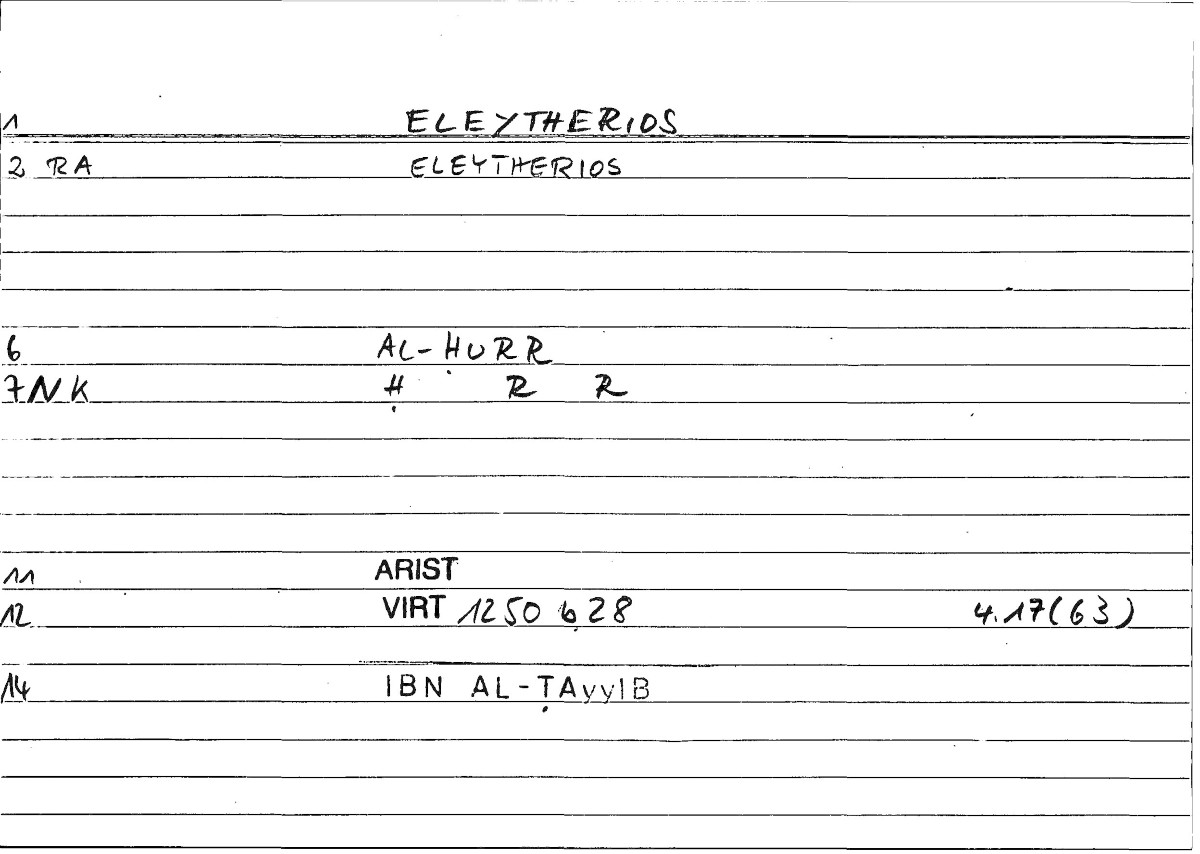 1 ELEYTHERIOS
2 RA ELEYTHERIOS
6 AL-ḤURR
7 NK Ḥ R R
11 ARIST
12 VIRT 1250 b 28 4.17(63)
14 IBN AL-ṬAyyIB